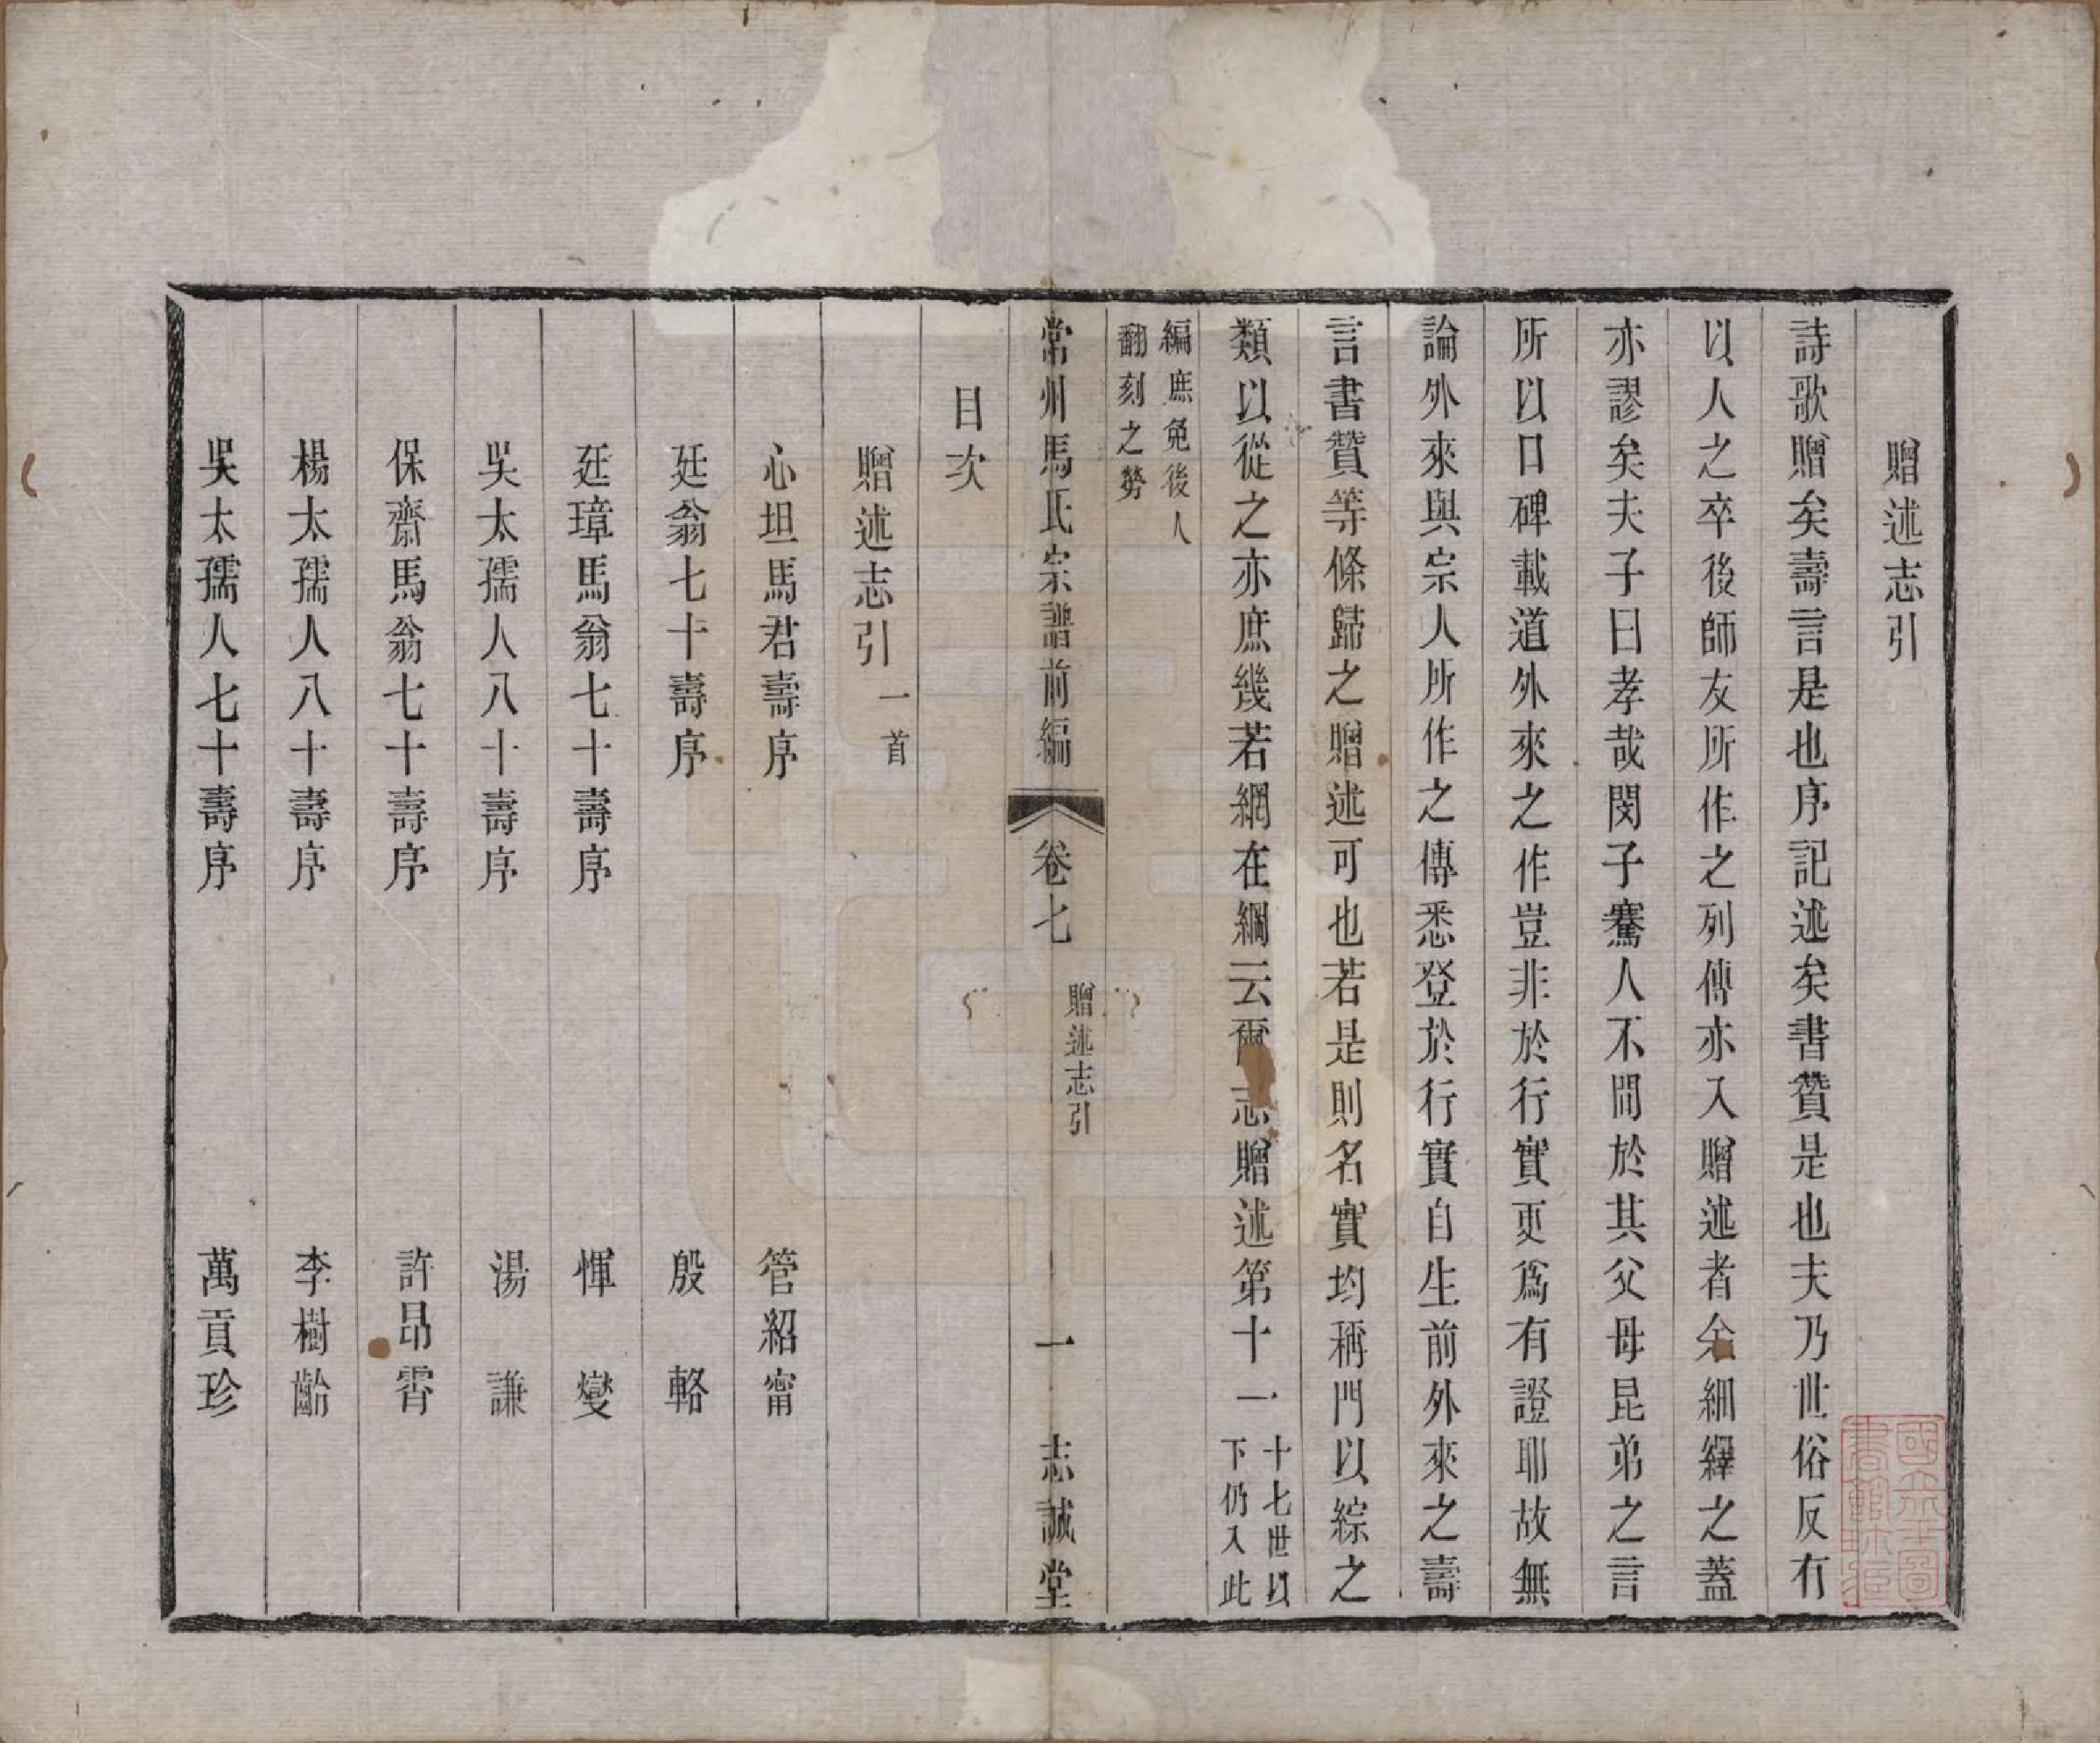 贈述志引
詩歌贈矣壽言是也序記述矣書贊是也夫乃世俗反有
以人之卒後師友所作之列傳亦入贈述者余細繹之蓋
亦謬矣夫子曰孝哉閔子騫人不間於其父母昆弟之言
所以口碑載道外來之作豈非於行實更爲有證耶故無
論外來與宗人所作之傳悉登於行實自生前外來之壽
言書贊等條歸之贈述可也若是則名實均稱門以綜之
類以從之亦庶幾若網在綱云爾志贈述第十一十七世以下仍入此
編庶免後人
翻刻之勞
常州馬氏宗譜前編 卷七 贈述志引 一 志誠堂
目次
贈述志引一首
心坦馬君壽序 管紹甯
廷翁七十壽序 殷輅
廷璋馬翁七十壽序 惲燮
吳太孺人八十壽序 湯謙
保齋馬翁七十壽序 許昂霄
楊太孺人八十壽序 李樹齡
吳太孺人七十壽序 萬貢珍